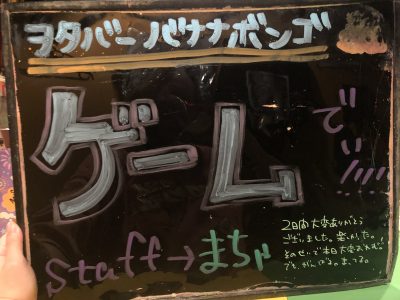 ヲタバーバナナボンゴ
ゲーム
で!!!!
2日間大変ありがとう
ございました。楽しかった。
Staff→まちゃ